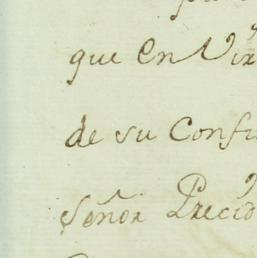 que En Vir
de su Confi
Señor Precid